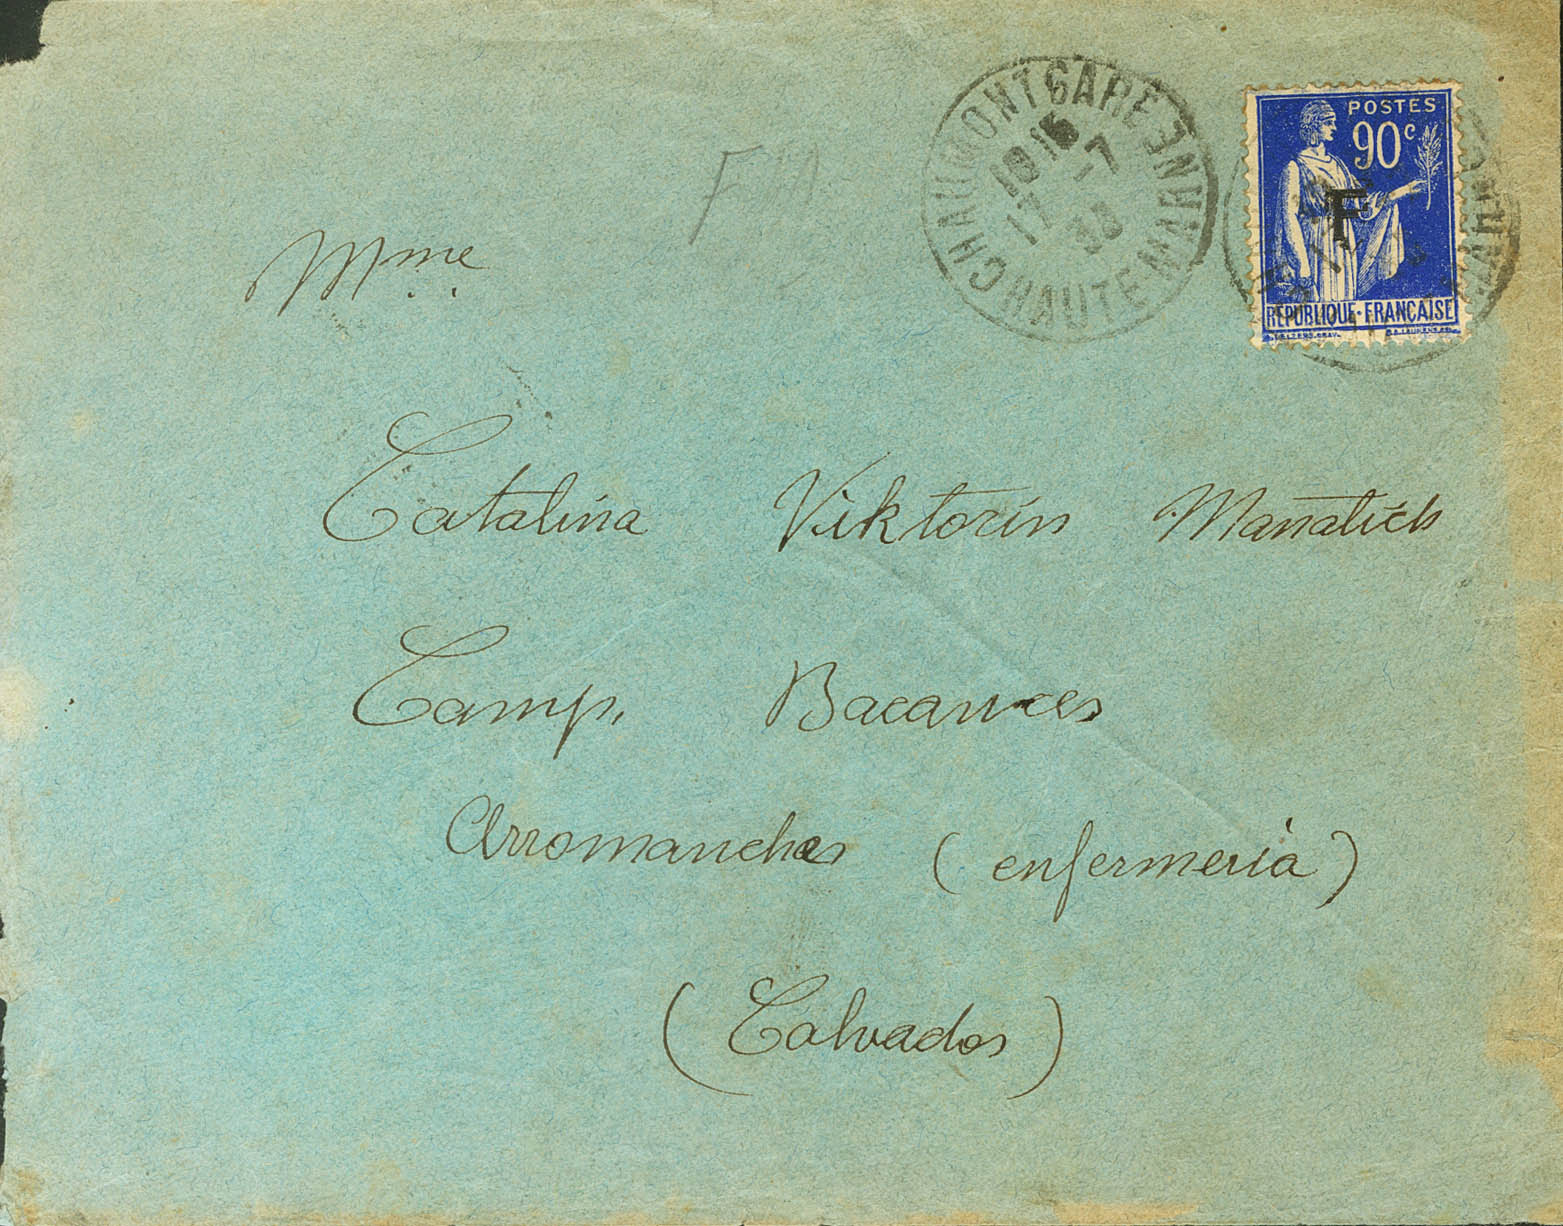 CHAUMONT GARE HAUTE MARNE
17 -7
38
POSTES
90c
F
RÉPUBLIQUE·FRANÇAISE
FM
Mme
Catalina Viktorin Manatich
Camp. Bacances
Arromanches (enfermeria)
(Calvados)